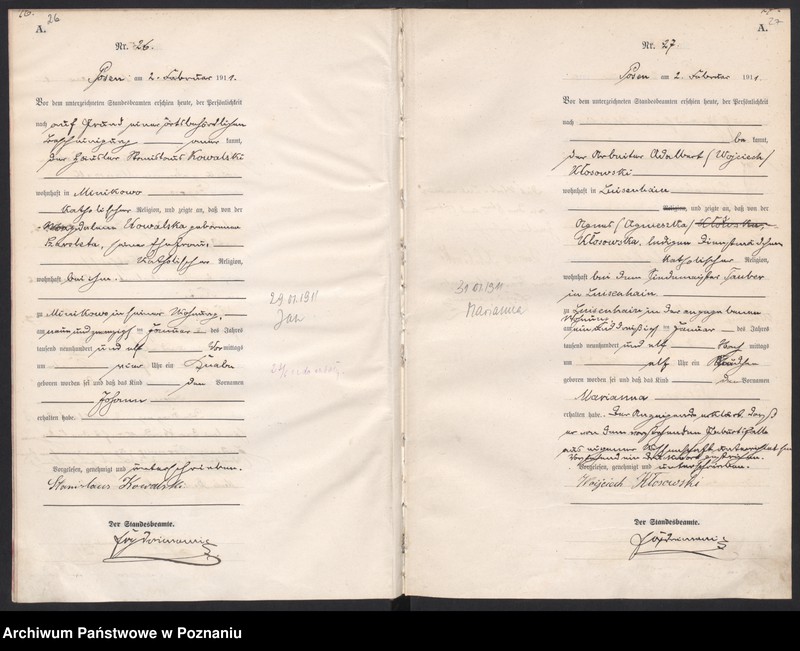 26
A.
Nr. 26.
Posen am 2. Februar 1911.
Vor dem unterzeichneten Standesbeamten erschien heute, der Persönlichkeit
nach auf Grund einer ortsbehördlichen
Bescheinigung anerkannt,
der Häusler Stanislaus Kowalski
wohnhaft in Minikowo
katholischer Religion, und zeigte an, daß von der
Kowalska geborenen
seiner Ehefrau
katholischer Religion,
wohnhaft bei ihm.
zu Minikowo in seiner Wohnung,
am neunundzwanzigsten Januar des Jahres
tausend neunhundert und elf Vormittags
um Uhr ein Knabe
geboren worden sei und daß das Kind den Vornamen
Johann
erhalten habe.
Vorgelesen, genehmigt und unterschrieben.
Stanislaus Kowalski
Der Standesbeamte.
29.01.1911
Jan
27
A.
Nr. 27.
Posen am 2. Februar 1911.
Vor dem unterzeichneten Standesbeamten erschien heute, der Persönlichkeit
nach
bekannt,
der Arbeiter Adalbert (Wojciech)
Kłosowski
wohnhaft in Luisenhain
Religion, und zeigte an, daß von der
Agnes (Agnieszka) Kłosowska,
Kłosowska, ledigen Dienstmädchen
katholischer Religion,
wohnhaft bei dem Tauber
in Luisenhain
zu Luisenhain in der angegebenen
Wohnung
am einunddreißigsten Januar des Jahres
tausend neunhundert und elf Nachmittags
um elf Uhr ein Mädchen
geboren worden sei und daß das Kind den Vornamen
Marianna
erhalten habe. Der Anzeigende erklärt, daß
er von dem vorstehenden Geburtsfalle
aus eigener Wissenschaft unterrichtet sei.
Vorgelesen, genehmigt und unterschrieben.
Wojciech Kłosowski
Der Standesbeamte.
31.01.1911
Marianna
Archiwum Państwowe w Poznaniu